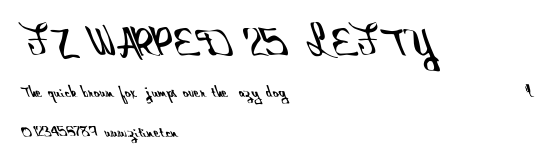 FZ WARPED 25 LEFTY
The quick brown fox jumps over the azy dog l
0123456787 www.zitinet.cn